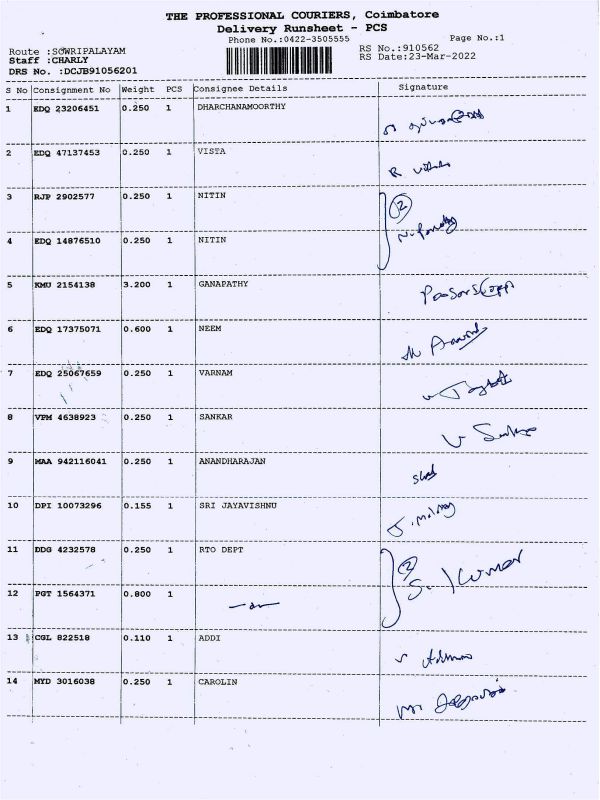 THE PROFESSIONAL COURIERS, Coimbatore
Delivery Runsheet - PCS
Phone No.:0422-3505555 Page No.:1
Route :SOWRIPALAYAM RS No.:910562
Staff :CHARLY RS Date:23-Mar-2022
DRS No. :DCJB91056201
S No Consignment No Weight PCS Consignee Details Signature
1 EDQ 23206451 0.250 1 DHARCHANAMOORTHY
2 EDQ 47137453 0.250 1 VISTA
3 RJP 2902577 0.250 1 NITIN 2
4 EDQ 14876510 0.250 1 NITIN
5 KMU 2154138 3.200 1 GANAPATHY
6 EDQ 17375071 0.600 1 NEEM
7 EDQ 25067659 0.250 1 VARNAM
8 VPM 4638923 0.250 1 SANKAR
9 MAA 942116041 0.250 1 ANANDHARAJAN
10 DPI 10073296 0.155 1 SRI JAYAVISHNU
11 DDG 4232578 0.250 1 RTO DEPT 2
12 PGT 1564371 0.800 1
13 CGL 822518 0.110 1 ADDI
14 MYD 3016038 0.250 1 CAROLIN